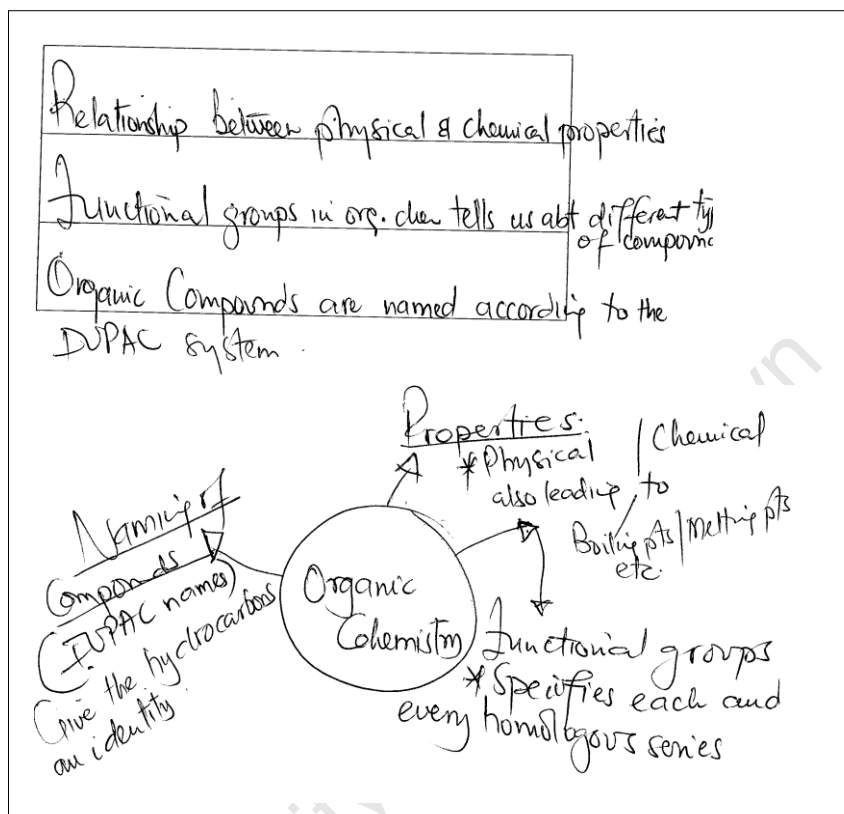 Relationship between physical & chemical properties
Functional groups in org. chem tells us abt different typ
of compound
Organic Compounds are named according to the
IUPAC system.
Properties:
* Physical / Chemical
also leading to
Boiling pts / Melting pts
etc.
Naming of
Compounds
(IUPAC names)
Give the hydrocarbons
an identity.
Organic
Cohemistry
Functional groups
* Specifies each and
every homologous series